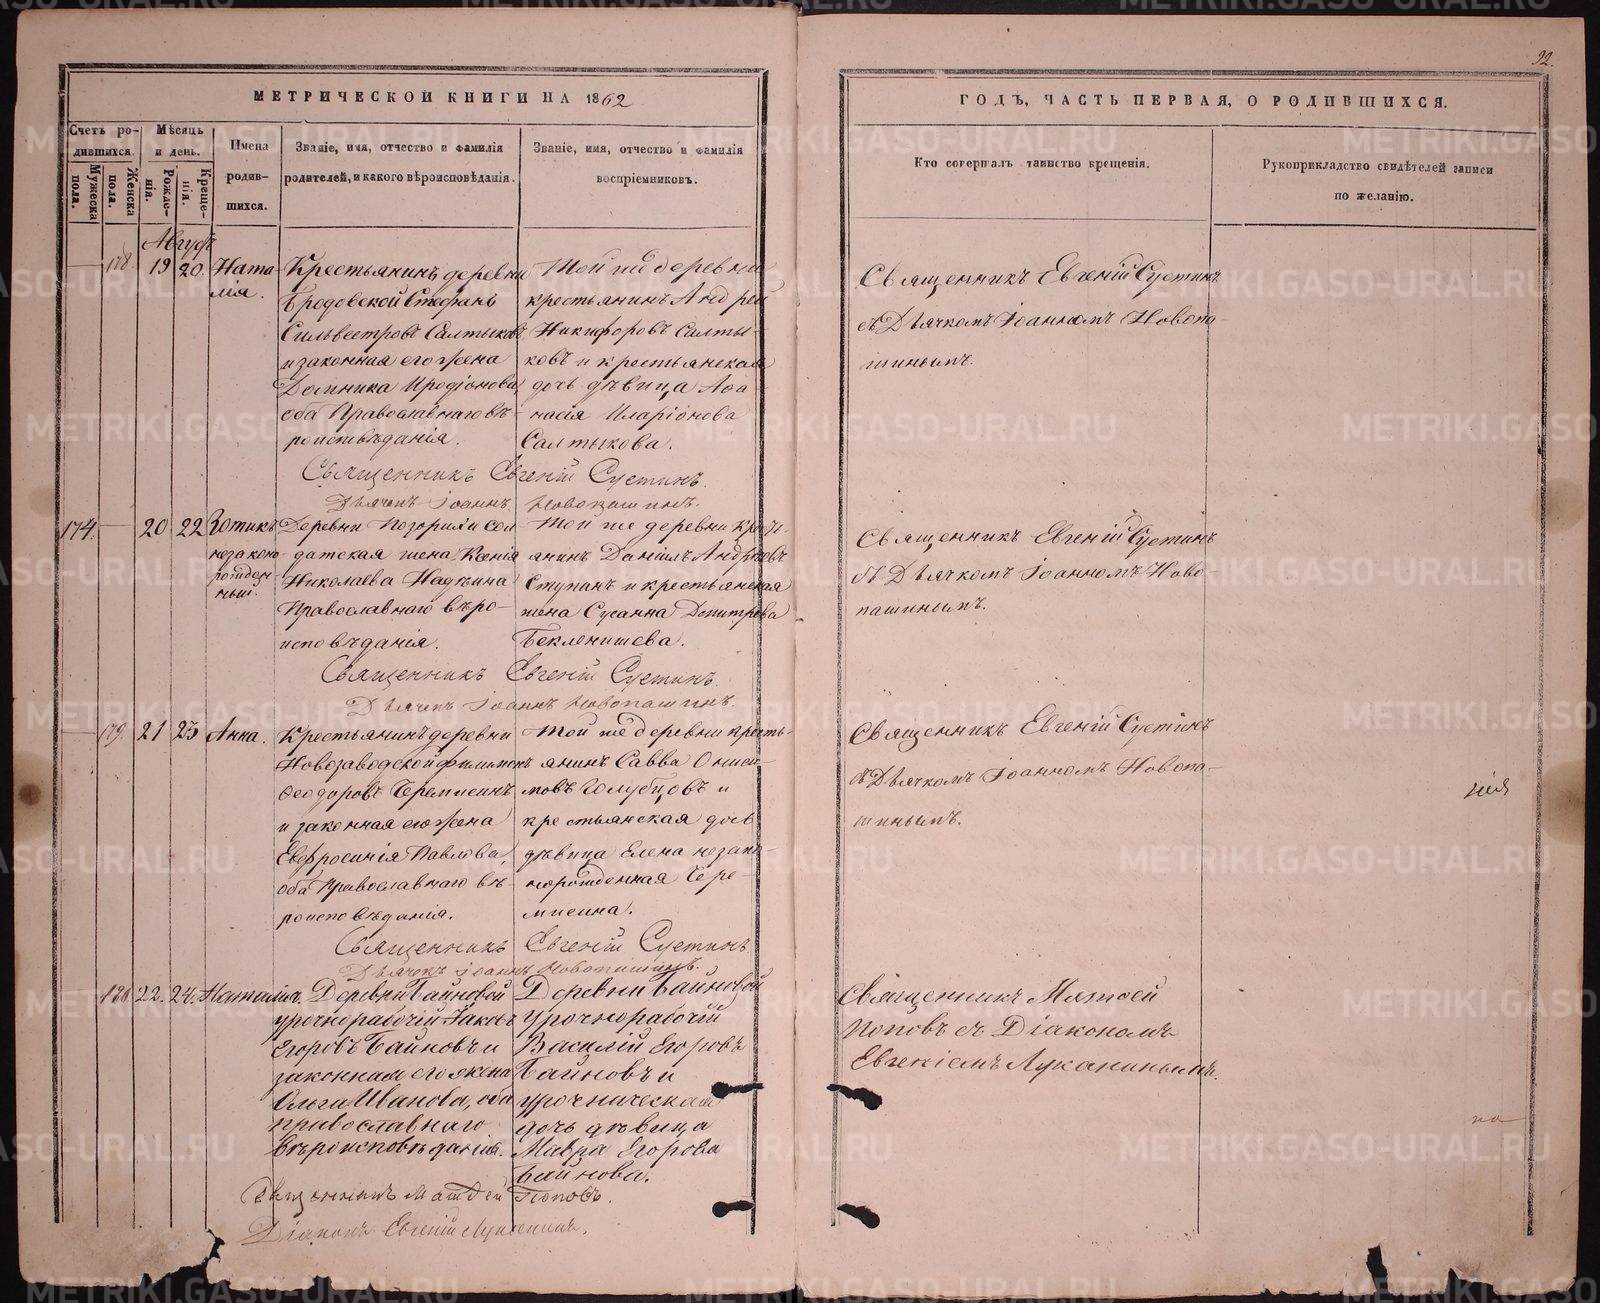 92.
МЕТРИЧЕСКОЙ КНИГИ НА 1862
ГОДЪ, ЧАСТЬ ПЕРВАЯ, О РОДИВШИХСЯ.
Счетъ родившихся.
Мужеска пола.
Женска пола.
Мѣсяцъ и день.
Рожденія.
Крещенія.
Имена родившихся.
Званіе, имя, отчество и фамилія родителей, и какого вѣроисповѣданія.
Званіе, имя, отчество и фамилія воспріемниковъ.
Кто совершалъ таинство крещенія.
Рукоприкладство свидѣтелей записи по желанію.
Августъ
178 19 20. Ната-
лія.
Крестьянинъ деревни
Бродовской Стефанъ
Сильвестровъ Салтыковъ
и законная его жена
Домника Иродіонова,
оба Православнаго вѣ-
роисповѣданія.
Той же деревни
крестьянинъ Андрей
Никифоровъ Салты-
ковъ и крестьянская
дочь дѣвица Аѳа-
насія Иларіонова
Салтыкова.
Священникъ Евгеній Сустинъ
съ Дьячкомъ Іоанномъ Новопа-
шинымъ.
Священникъ Евгеній Сустинъ.
Дьячекъ Іоаннъ Новопашинъ.
174. 20 22 Зотикъ
незаконо-
рожден-
ный.
Деревни Позарихи сол-
датская жена Ксенія
Николаева Надкина
Православнаго вѣро-
исповѣданія.
Той же деревни кресть-
янинъ Даніилъ Андреевъ
Ступинъ и крестьянская
жена Сусанна Дмитріева
Бекленишева.
Священникъ Евгеній Сустинъ
съ Дьячкомъ Іоанномъ Ново-
пашинымъ.
Священникъ Евгеній Сустинъ.
Дьячекъ Іоаннъ Новопашинъ.
179. 21 23 Анна.
Крестьянинъ деревни
Новозаводской
Ѳеодоровъ Черемисинъ
и законная его жена
Евфросинія Павлова,
оба Православнаго вѣ-
роисповѣданія.
Той же деревни кресть-
янинъ Савва Ониси-
мовъ Голубцовъ и
крестьянская дочь
дѣвица Елена незако-
норожденная Чере-
мисина.
Священникъ Евгеній Сустинъ
съ Дьячкомъ Іоанномъ Новопа-
шинымъ.
нія
Священникъ Евгеній Сустинъ
Дьячекъ Іоаннъ Новопашинъ.
180 22. 24. Наталія.
Деревни Байновой
урочнорабочій Іаковъ
Егоровъ Байновъ и
законная его жена
Ольга Иванова, оба
православнаго
вѣроисповѣданія.
Деревни Байновой
урочнорабочій
Василій Егоровъ
Байновъ и
урочническая
дочь дѣвица
Мавра Егорова
Байнова.
Священникъ Матѳей
Поповъ съ Діакономъ
Евгеніемъ Луканинымъ.
по
Священникъ Матѳей Поповъ.
Діаконъ Евгеній Луканинъ.
METRIKI.GASO-URAL.RU